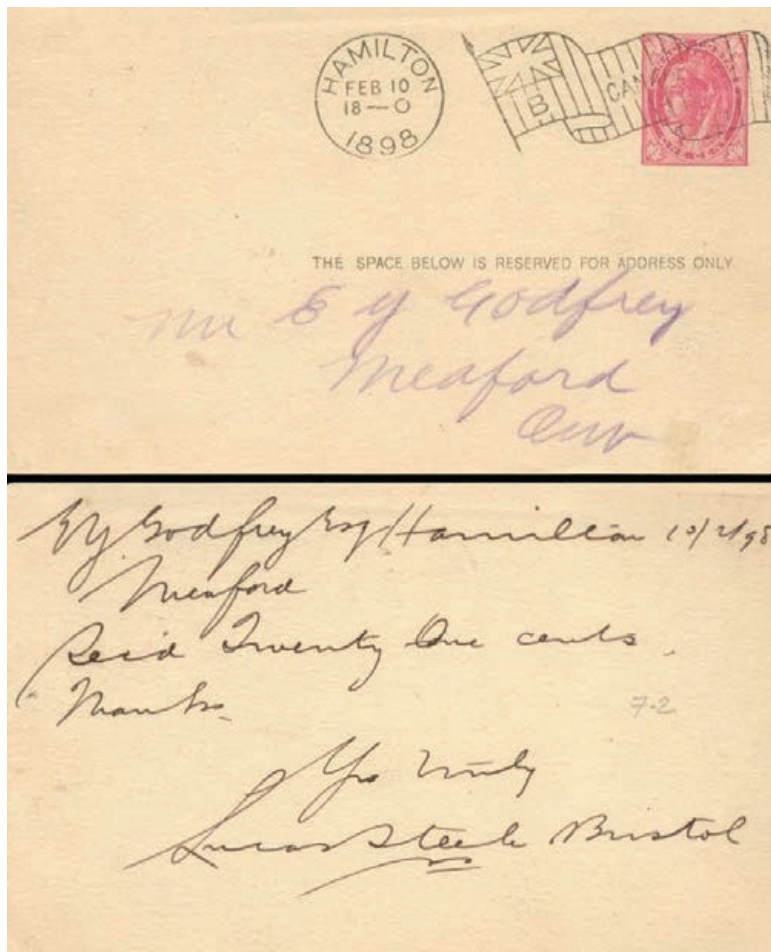 HAMILTON
FEB 10
18 — 0
1898
B
CAN
THE SPACE BELOW IS RESERVED FOR ADDRESS ONLY
Mr E Y Godfrey
Meaford
Ont
E Y Godfrey Esq Hamilton 10/2/98
Meaford
Recd Twenty One cents.
Thanks
7-2
Yrs Truly
Lucas Steele Bristol